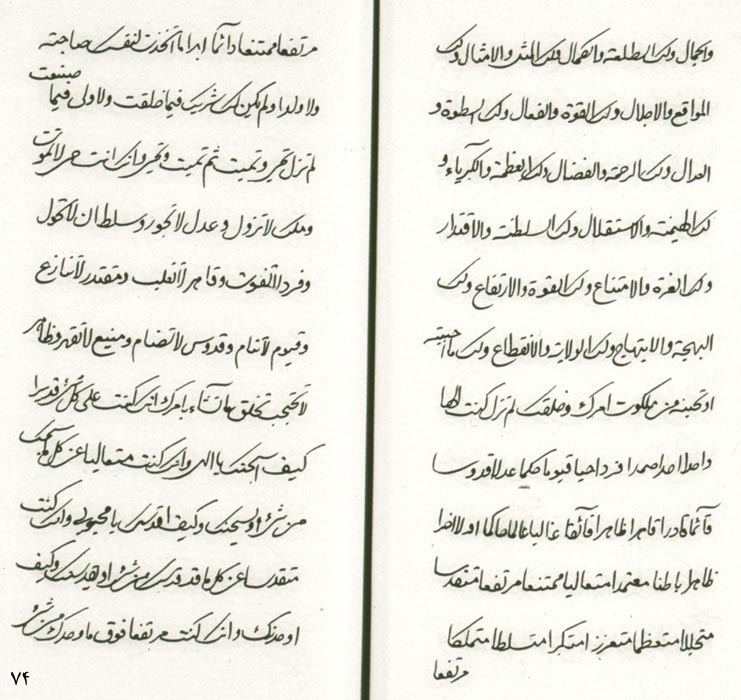 والجمال ولك الطلعة والكمال ولك المثل والامثال ولك
المواقع والاجلال ولك القوة والفعال ولك السطوة و
العدال ولك الرحمة والفضال ولك العظمة والكبرياء و
لك الهيمنة والاستقلال ولك السلطنة والاقتدار
ولك العزة والامتناع ولك القوة والارتفاع ولك
البهجة والابتهاج ولك الولاية والانقطاع ولك ما احببته
او تحبنه من ملكوت امرك وخلقك لم تزل كنت الها
واحدا احدا صمدا فردا حيا قيوما حكما عدلا قدوسا
قائما قادرا قاهرا ظاهرا فائقا غالبا عالما حاكما اولا اخرا
ظاهرا باطنا معتمدا متعاليا ممتنعا مرتفعا متقدسا
متجللا متعظما متعززا متكبرا متسلطا متملكا
مرتفعا
مرتفعا ممتنعا دائما ابدا ما اتخذت لنفسك صاحبة
ولا ولدا ولم يكن لك شريك فيما خلقت ولا ولي فيما
صنعت
لم تزل تحيي وتميت ثم تميت وتحيي وانك انت حي لا تموت
وملك لا تزول وعدل لا تجور وسلطان لا تحول
وفرد لا تفوت وقاهر لا تغلب ومقتدر لا تنازع
وقيوم لا تنام وقدوس لا تضام ومنيع لا تقهر وظاهر
لا تحجب تخلق ما تشاء بامرك انك كنت على كل شيء قديرا
كيف اسبحنك يا الهي وانك كنت متعاليا عن كل ما سبحك
من شيء او يسبحنك وكيف اقدسك يا محبوبي وانك كنت
متقدسا عن كل ما قد قدسك من شيء او يقدسنك وكيف
اوحدنك وانك كنت مرتفعا فوق ما وحدك من شيء
۷۴